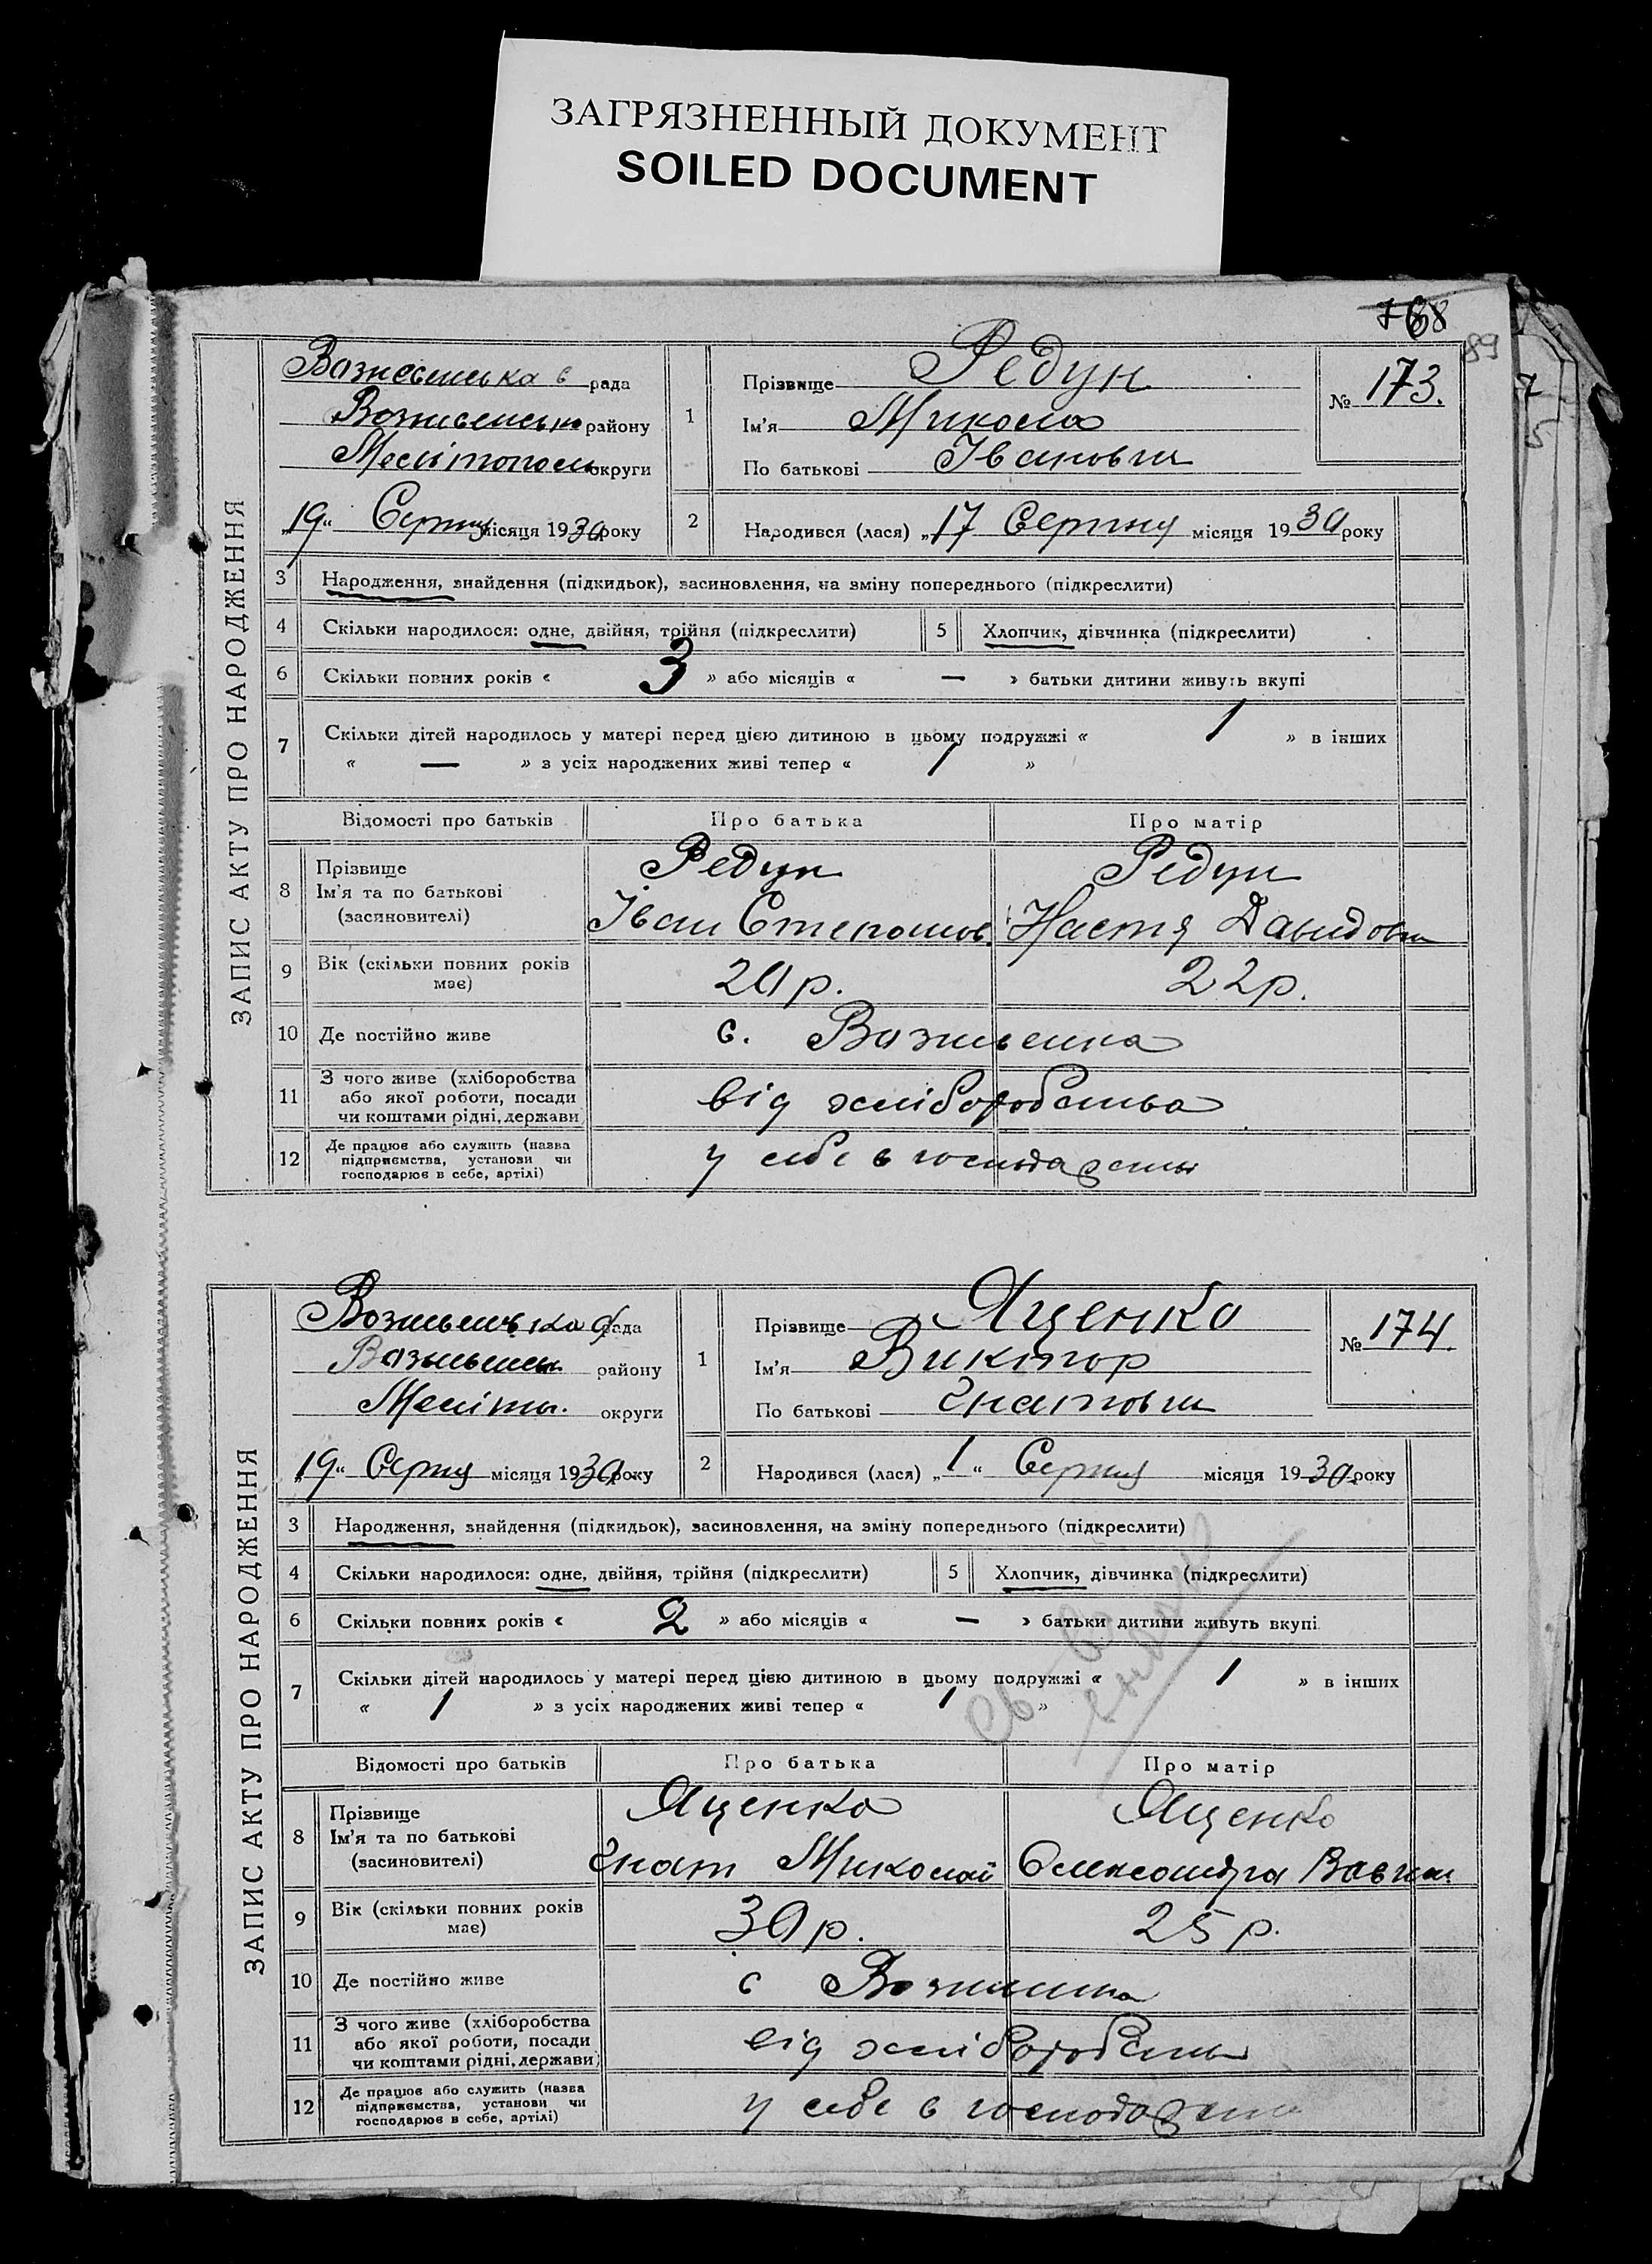 ЗАГРЯЗНЕННЫЙ ДОКУМЕНТ
SOILED DOCUMENT
89
ЗАПИС АКТУ ПРО НАРОДЖЕННЯ
Вознесенська рада
Вознесенськ району
Мелітополь округи
„19“ Серпня місяця 1930 року
1 Прізвище Редун
Ім'я Микола
По батькові Іванович
№ 173.
2 Народився (лася) „17 Серпня місяця 1930 року
3 Народження, знайдення (підкидьок), засиновлення, на зміну попереднього (підкреслити)
4 Скільки народилося: одне, двійня, трійня (підкреслити) 5 Хлопчик, дівчинка (підкреслити)
6 Скільки повних років « 3 » або місяців « — » батьки дитини живуть вкупі
7 Скільки дітей народилось у матері перед цією дитиною в цьому подружжі « 1 » в інших
« — » з усіх народжених живі тепер « 1 »
Відомості про батьків Про батька Про матір
8 Прізвище
Ім'я та по батькові
(засиновителі)
Редун
Іван Степанов.
Редун
Настя Давидовн
9 Вік (скільки повних років
має)
20 р. 22 р.
10 Де постійно живе с. Вознесенка
11 З чого живе (хліборобства
або якої роботи, посади
чи коштами рідні, держави
від хліборобства
12 Де працює або служить (назва
підприємства, установи чи
господарює в себе, артілі)
у себе в господарстві
ЗАПИС АКТУ ПРО НАРОДЖЕННЯ
Вознесенська рада
Вознесенськ району
Меліт. округи
„19“ Серпня місяця 1930 року
1 Прізвище Яценко
Ім'я Виктор
По батькові Гнатович
№ 174.
2 Народився (лася) „1“ Серпня місяця 1930 року
3 Народження, знайдення (підкидьок), засиновлення, на зміну попереднього (підкреслити)
4 Скільки народилося: одне, двійня, трійня (підкреслити) 5 Хлопчик, дівчинка (підкреслити)
6 Скільки повних років « 2 » або місяців « — » батьки дитини живуть вкупі
7 Скільки дітей народилось у матері перед цією дитиною в цьому подружжі « 1 » в інших
« 1 » з усіх народжених живі тепер « 1 »
Відомості про батьків Про батька Про матір
8 Прізвище
Ім'я та по батькові
(засиновителі)
Яценко
Гнат Миколай
Яценко
Олександра
9 Вік (скільки повних років
має)
30 р. 25 р.
10 Де постійно живе с Вознесенка
11 З чого живе (хліборобства
або якої роботи, посади
чи коштами рідні, держави)
від хліборобства
12 Де працює або служить (назва
підприємства, установи чи
господарює в себе, артілі)
у себе в господарстві